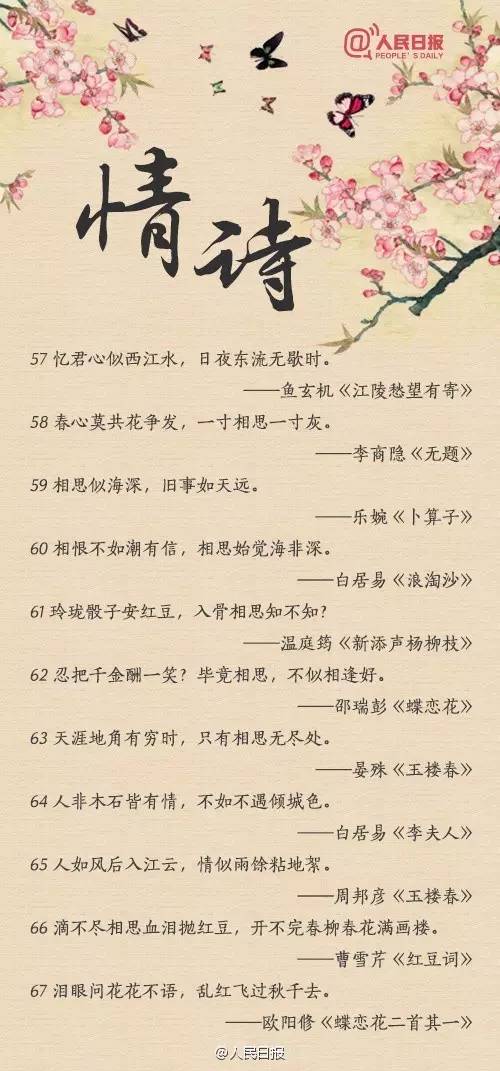 人民日报
PEOPLE'S DAILY
情诗
57 忆君心似西江水，日夜东流无歇时。
——鱼玄机《江陵愁望有寄》
58 春心莫共花争发，一寸相思一寸灰。
——李商隐《无题》
59 相思似海深，旧事如天远。
——乐婉《卜算子》
60 相恨不如潮有信，相思始觉海非深。
——白居易《浪淘沙》
61 玲珑骰子安红豆，入骨相思知不知？
——温庭筠《新添声杨柳枝》
62 忍把千金酬一笑？毕竟相思，不似相逢好。
——邵瑞彭《蝶恋花》
63 天涯地角有穷时，只有相思无尽处。
——晏殊《玉楼春》
64 人非木石皆有情，不如不遇倾城色。
——白居易《李夫人》
65 人如风后入江云，情似雨馀粘地絮。
——周邦彦《玉楼春》
66 滴不尽相思血泪抛红豆，开不完春柳春花满画楼。
——曹雪芹《红豆词》
67 泪眼问花花不语，乱红飞过秋千去。
——欧阳修《蝶恋花二首其一》
@人民日报